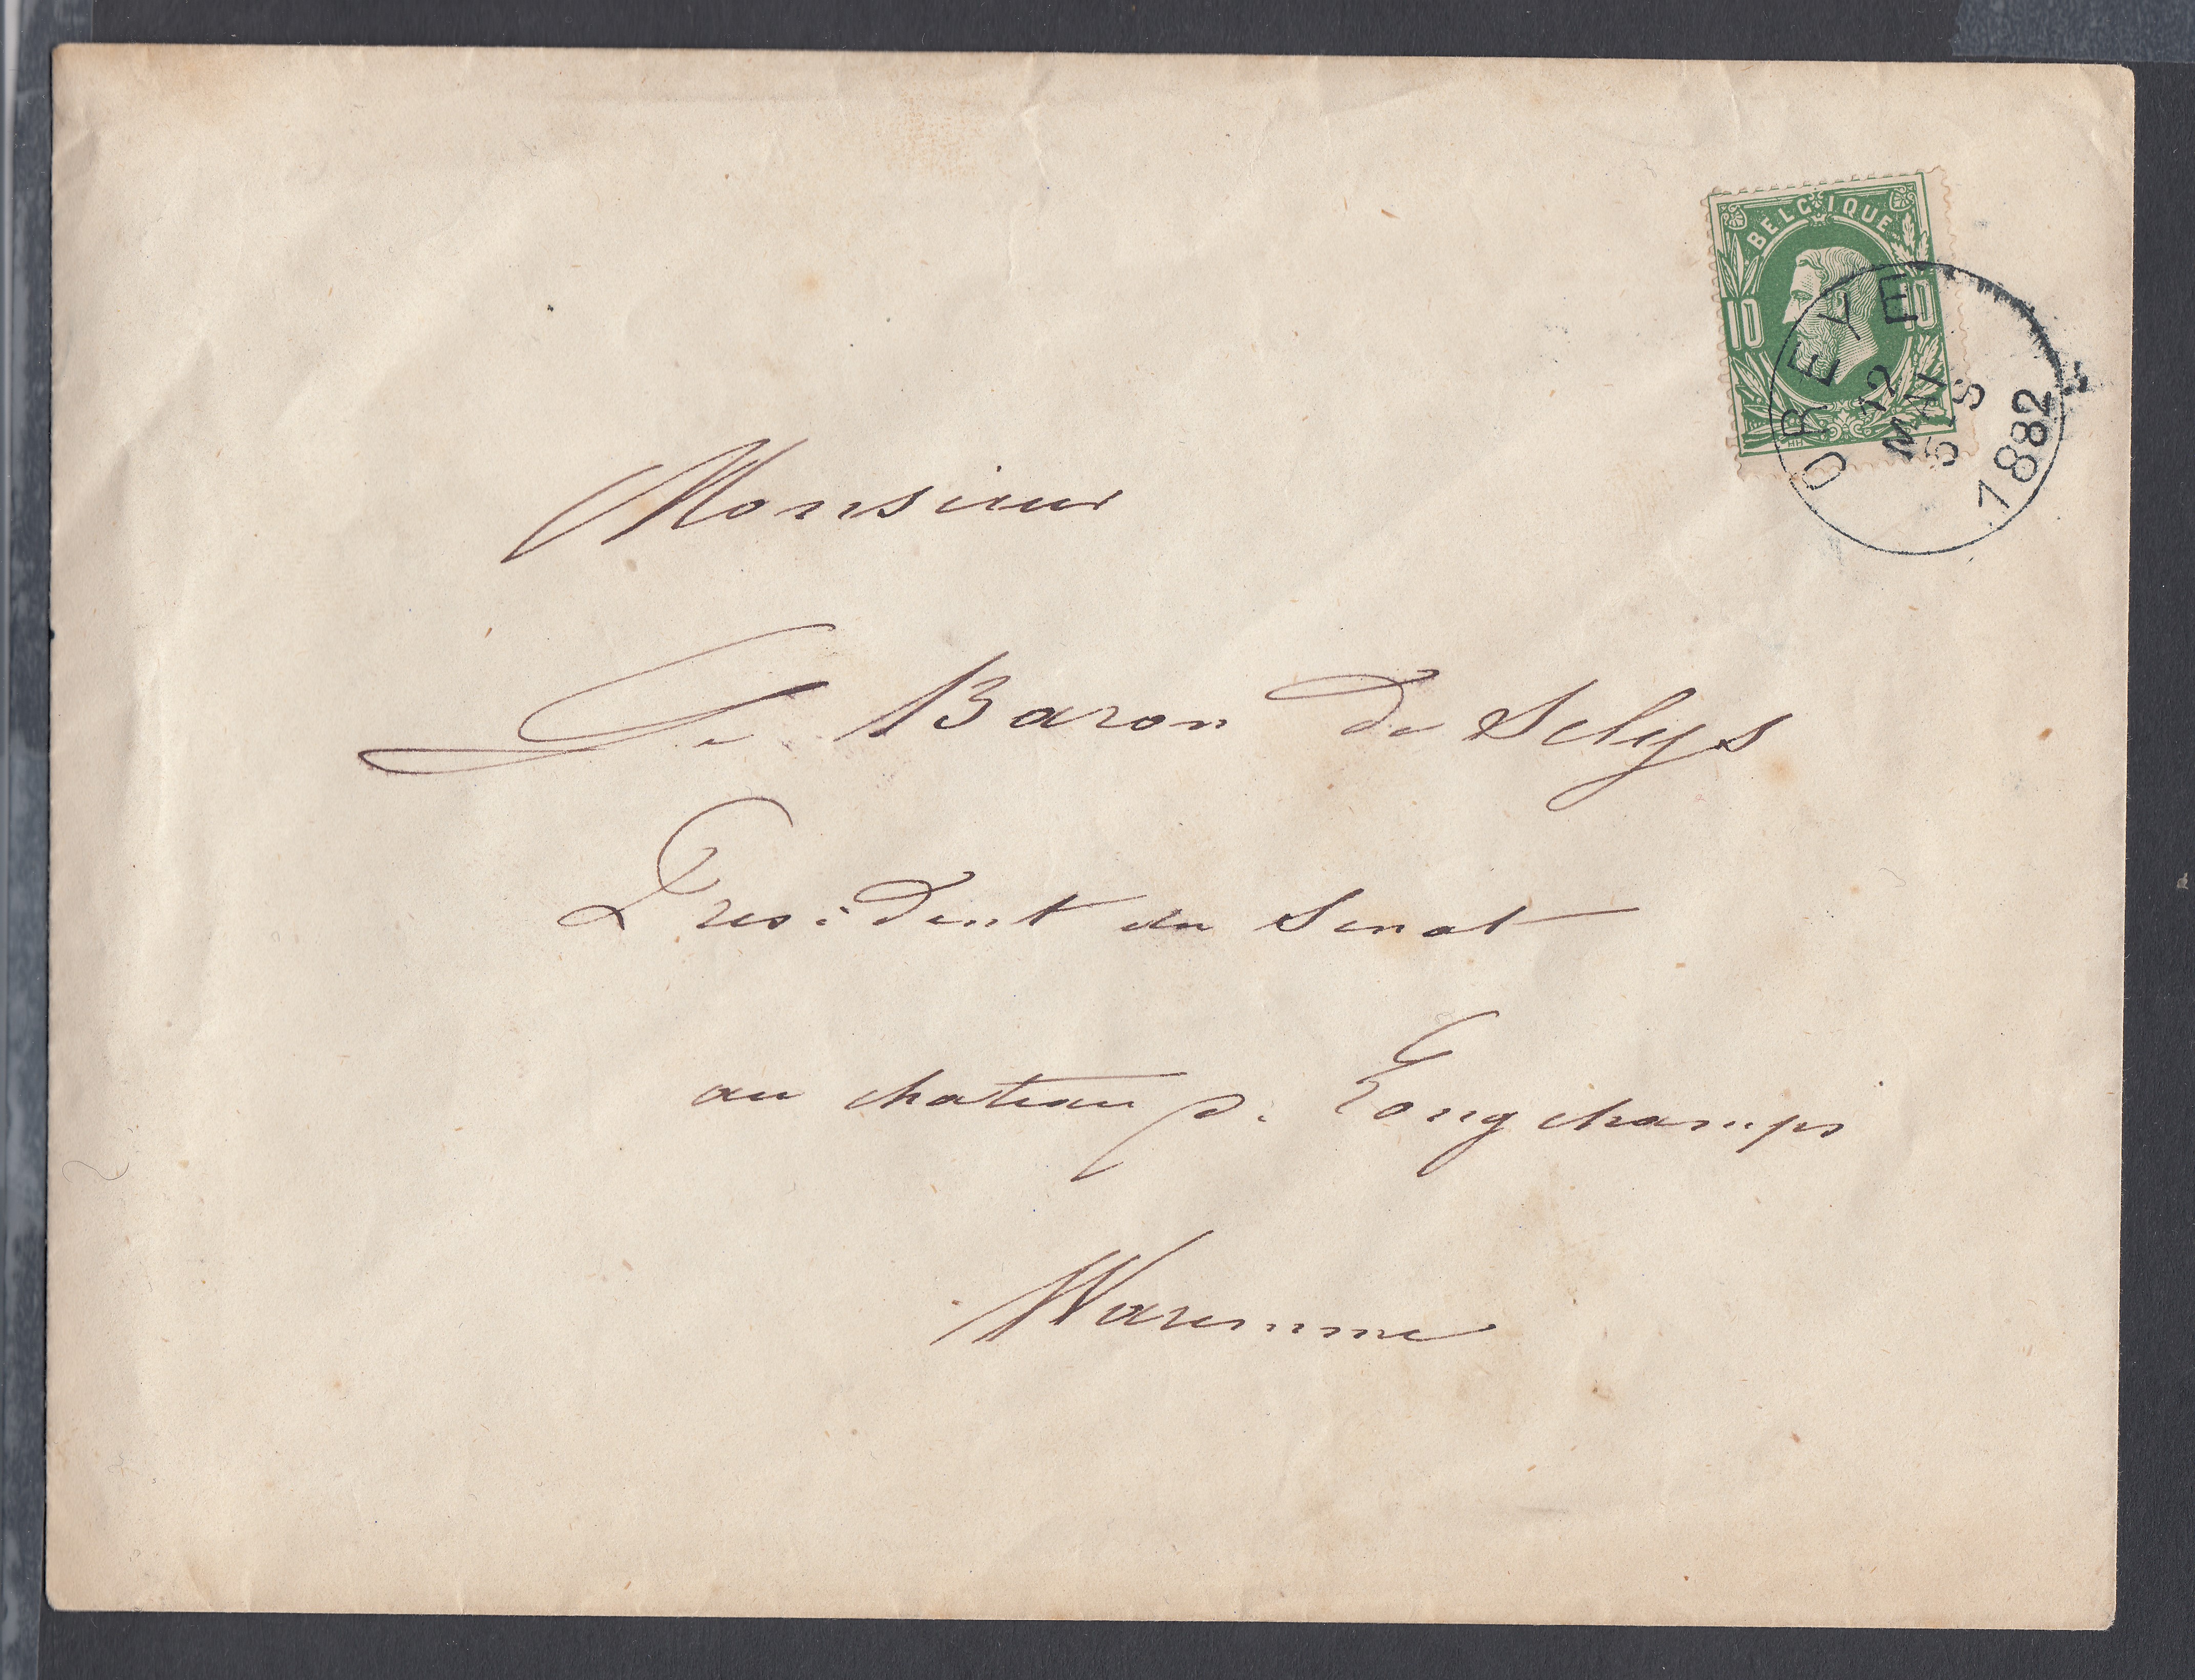 BELGIQUE
10 10
OREYE
12
MAI
5 S
1882
Monsieur
Le Baron de Selys
President du Senat
au chateau de Longchamps
Waremme